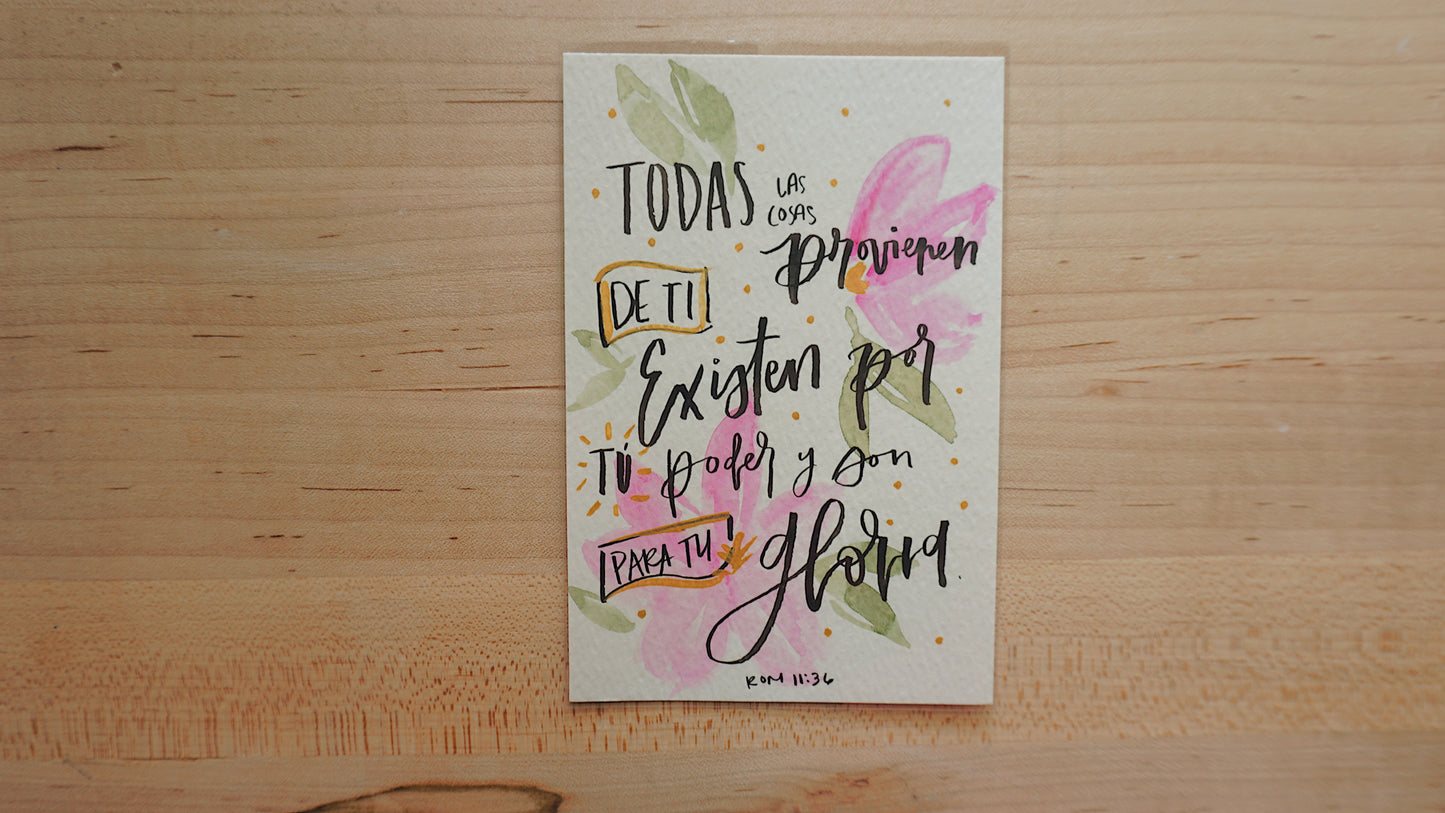 TODAS LAS COSAS
provienen
DE TI
Existen por
TÚ poder y son
PARA TU gloria.
ROM 11:36